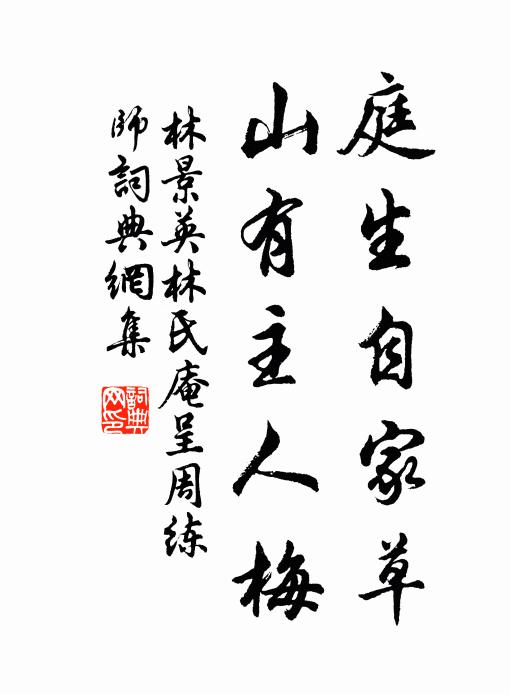 庭生自家草
山有主人梅
林景英林氏庵呈周练
师詞典網集
詞典
网印